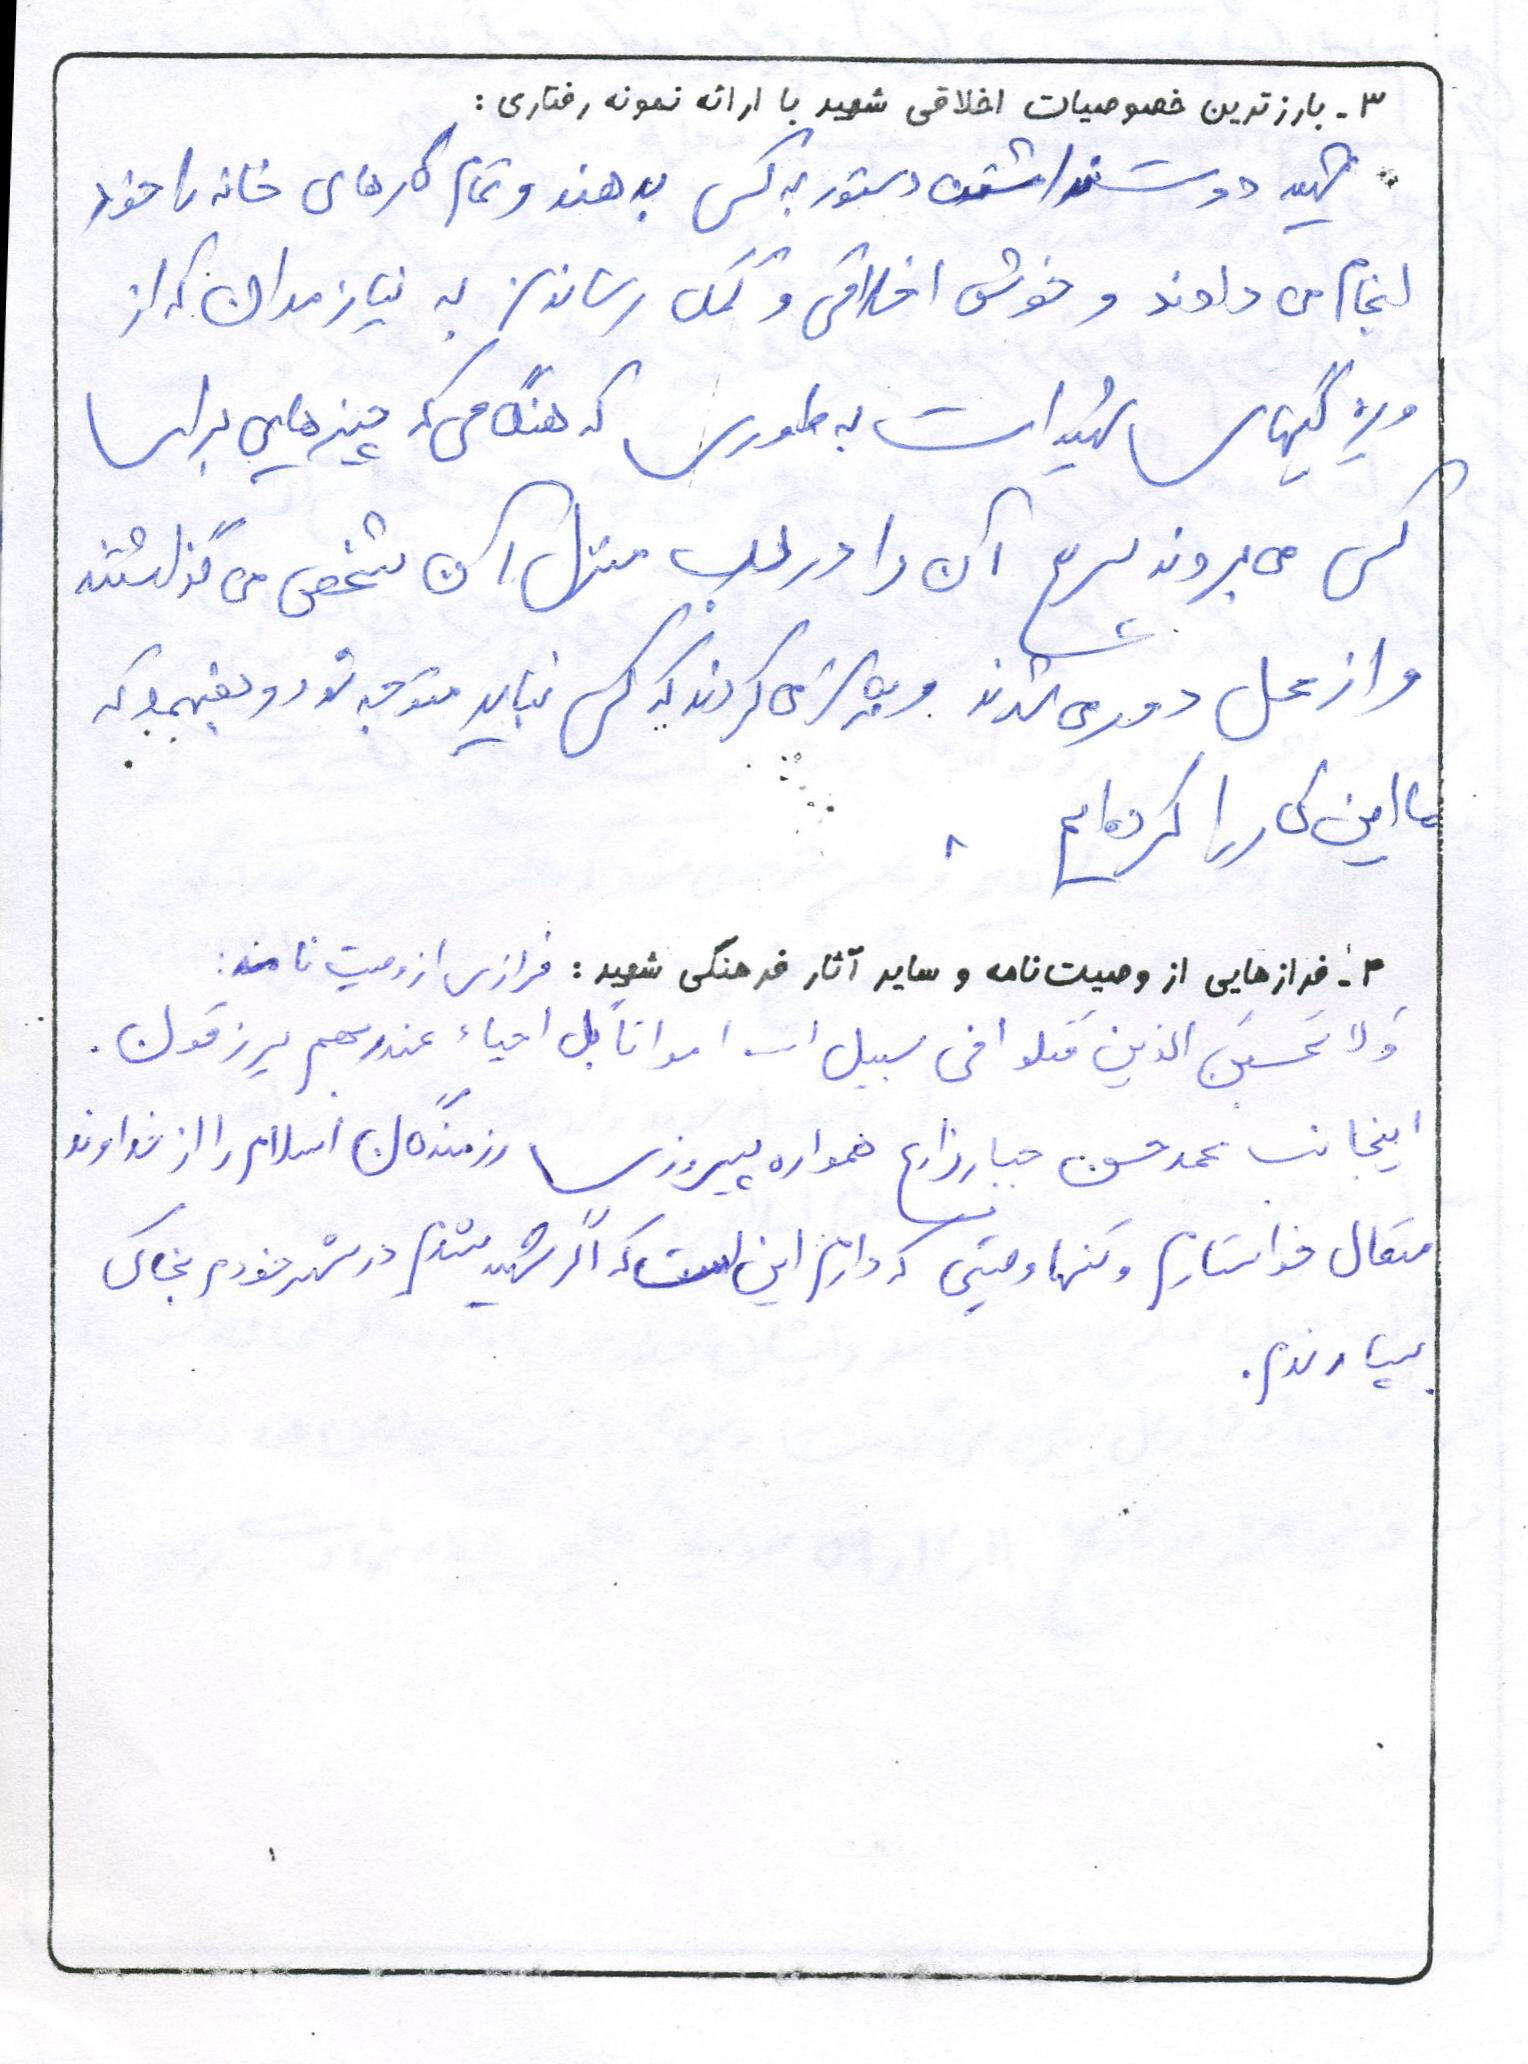 ۳ـ بارزترین خصوصیات اخلاقی شهید با ارائه نمونه رفتاری :
شهید دوست نداشتند دستور به کسی بدهند و تمام کارهای خانه را خود
انجام می دادند و خوش اخلاقی و کمک رساندن به نیازمندان که از
ویژگیهای شهید است به طوری که هنگامی که چیزهایی برای
کسی می بردند سریع آن را درب منزل آن شخص می گذاشتند
و از محل دور می شدند و می کردند که کسی نباید متوجه شود و بفهمد که
ما این کار را کرده ایم .
۴ـ فرازهایی از وصیت‌نامه و سایر آثار فرهنگی شهید : فرازی از وصیت نامه :
وَلا تَحسَبَن الذین قتلوا فی سبیل الله امواتاً بل احیاء عند ربهم یرزقون .
اینجانب محمدحسن جبارزارع همواره پیروزی رزمندگان اسلام را از خداوند
متعال خواستارم و تنها وصیتی که دارم این است که اگر شهید شدم در شهر خودم بخاک
بسپارندم .